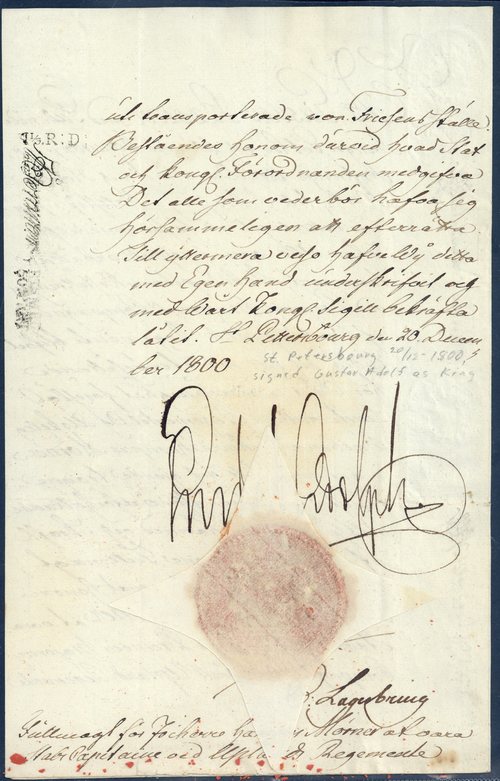 uti transporterade von Friesens ställe.
Bestående honom därvid hvad Stat
och Kongl. Förordnanden medgifva
Det alle som vederbör hafva sig
hörsammeligen att efterrätta.
Till yttermera visso hafve Wij detta
med Egen hand underskrifvit och
med Wårt Kongl. Sigill bekräfta
låtit. St Petersbourg den 20. Decem¬
ber 1800
St. Petersbourg 20/12-1800,
signed Gustav Adolf as King
R:D
Gustaf Adolph
Lagerbring
Fullmagt för Friherre Mörner at vara
Stabs Capitaine vid Regemente